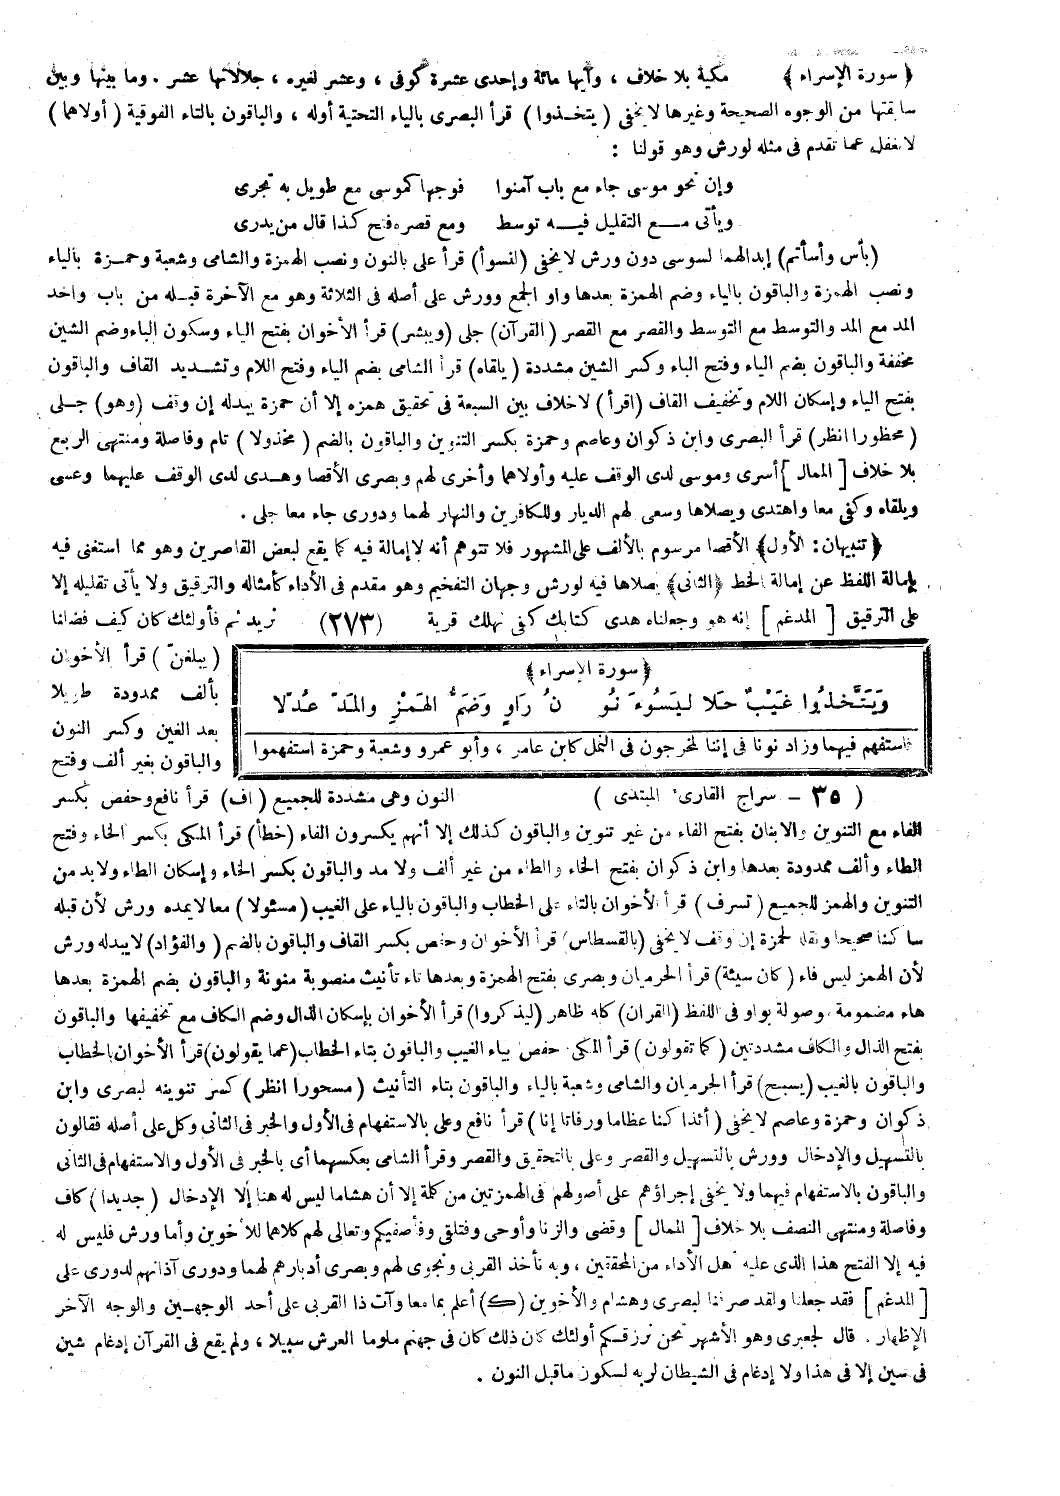 ﴿ سورة الإسراء ﴾ مكية بلا خلاف ، وآيها مائة وإحدى عشرة كوفى ، وعشر لغيره ، جلالاتها عشر . وما بينها وبين
سابقتها من الوجوه الصحيحة وغيرها لا يخفى ( يتخذوا ) قرأ البصرى بالياء التحتية أوله ، والباقون بالتاء الفوقية ( أولاهما )
لا تغفل عما تقدم فى مثله لورش وهو قولنا :
وإن نحو موسى جاء مع باب آمنوا فوجها كموسى مع طويل به تجرى
ويأتى مع التقليل فيه توسط ومع قصره فتح كذا قال من يدرى
(بأس وأسأتم) إبدالهما لسوسى دون ورش لا يخفى (لنسوأ) قرأ على بالنون ونصب الهمزة والشامى وشعبة وحمزة بالياء
ونصب الهمزة والباقون بالياء وضم الهمزة بعدها واو الجمع وورش على أصله فى الثلاثة وهو مع الآخرة قبله من باب واحد
المد مع المد والتوسط مع التوسط والقصر مع القصر (القرآن) جلى (ويبشر) قرأ الأخوان بفتح الياء وسكون الباء وضم الشين
مخففة والباقون بضم الياء وفتح الباء وكسر الشين مشددة ( يلقاه) قرأ الشامى بضم الياء وفتح اللام وتشديد القاف والباقون
بفتح الياء وإسكان اللام وتخفيف القاف (اقرأ ) لا خلاف بين السبعة فى تحقيق همزه إلا أن حمزة يبدله إن وقف (وهو) جلى
( محظورا انظر) قرأ البصرى وابن ذكوان وعاصم وحمزة بكسر التنوين والباقون بالضم ( مخذولا ) تام وفاصلة ومنتهى الربع
بلا خلاف [ الممال ] أسرى وموسى لدى الوقف عليه وأولاهما وأخرى لهم وبصرى الأقصا وهدى لدى الوقف عليهما وعسى
ويلقاه وكفى معا واهتدى ويصلاها وسعى لهم الديار وللكافرين والنهار لهما ودورى جاء معا جلى .
﴿ تنبيهان : الأول﴾ الأقصا مرسوم بالألف على المشهور فلا تتوهم أنه لا إمالة فيه كما يقع لبعض القاصرين وهو مما استغنى فيه
بإمالة اللفظ عن إمالة الخط ﴿الثانى﴾ يصلاها فيه لورش وجهان التفخيم وهو مقدم فى الأداء كأمثاله والترقيق ولا يأتى تقليله إلا
على الترقيق [ المدغم ] إنه هو وجعلناه هدى كتابك كفى نهلك قرية (٢٧٣) نريد ثم فأولئك كان كيف فضلنا
( يبلغن ) قرأ الأخوان
بألف ممدودة طويلا
بعد الغين وكسر النون
والباقون بغير ألف وفتح
﴿ سورة الإسراء ﴾
وَيَتَّخِذُوا غَيْبٌ حَلَا لِيَسُوءَ نُو نُ رَاوٍ وَضَمُّ الهَمْزِ والمَدّ عُدّلَا
فاستفهم فيهما وزاد نونا فى إننا لمخرجون فى النمل كابن عامر ، وأبو عمرو وشعبة وحمزة استفهموا
( ٣٥ – سراج القارى المبتدى ) النون وهى مشددة للجميع ( اف) قرأ نافع وحفص بكسر
الفاء مع التنوين والابنان بفتح الفاء من غير تنوين والباقون كذلك إلا أنهم يكسرون الفاء (خطأ) قرأ المكى بكسر الخاء وفتح
الطاء وألف ممدودة بعدها وابن ذكوان بفتح الخاء والطاء من غير ألف ولا مد والباقون بكسر الخاء وإسكان الطاء ولا بد من
التنوين والهمز للجميع ( تسرف ) قرأ الأخوان بالتاء على الخطاب والباقون بالياء على الغيب (مسئولا ) معا لا يمده ورش لأن قبله
ساكنا صحيحا ونقله لحمزة إن وقف لا يخفى (بالقسطاس) قرأ الأخوان وحفص بكسر القاف والباقون بالضم ( والفؤاد) لا يبدله ورش
لأن الهمز ليس فاء ( كان سيئة) قرأ الحرميان وبصرى بفتح الهمزة وبعدها تاء تأنيث منصوبة منونة والباقون بضم الهمزة بعدها
هاء مضمومة موصولة بواو فى اللفظ (القرآن) كله ظاهر (ليذكروا) قرأ الأخوان بإسكان الذال وضم الكاف مع تخفيفها والباقون
بفتح الذال والكاف مشددتين ( كما تقولون ) قرأ المكى وحفص بياء الغيب والباقون بتاء الخطاب (عما يقولون) قرأ الأخوان بالخطاب
والباقون بالغيب (يسبح) قرأ الحرميان والشامى وشعبة بالياء والباقون بتاء التأنيث ( مسحورا انظر ) كسر تنوينه لبصرى وابن
ذكوان وحمزة وعاصم لا يخفى ( أئذا كنا عظاما ورفاتا إنا ) قرأ نافع وعلى بالاستفهام فى الأول والخبر فى الثانى وكل على أصله فقالون
بالتسهيل والإدخال وورش بالتسهيل والقصر وعلى بالتحقيق والقصر وقرأ الشامى بعكسهما أى بالخبر فى الأول والاستفهام فى الثانى
والباقون بالاستفهام فيهما ولا يخفى إجراؤهم على أصولهم فى الهمزتين من كلمة إلا أن هشاما ليس له هنا إلا الإدخال ( جديدا ) كاف
وفاصلة ومنتهى النصف بلا خلاف [ الممال ] وقضى والزنا وأوحى وفتلقى وفأصفيكم وتعالى لهم كلاهما للأخوين وأما ورش فليس له
فيه إلا الفتح هذا الذى عليه أهل الأداء من المحققين ، وبه نأخذ القربى ونجوى لهم وبصرى أدبارهم لهما ودورى آذانهم لدورى على
[ المدغم ] فقد جعلنا ولقد صرفنا لبصرى وهشام والأخوين (ك) أعلم بما معا وآت ذا القربى على أحد الوجهين والوجه الآخر
الإظهار . قال الجعبرى وهو الأشهر نحن نرزقكم أولئك كان ذلك كان فى جهنم ملوما العرش سبيلا ، ولم يقع فى القرآن إدغام شين
فى سين إلا فى هذا ولا إدغام فى الشيطان لربه لسكون ما قبل النون .